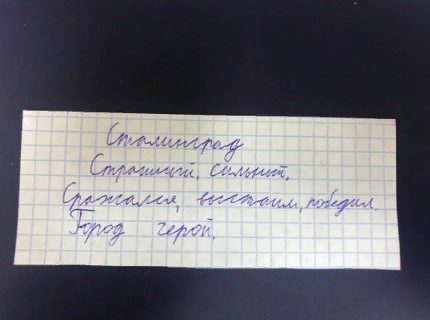 Сталинград
Страшный, сильный.
Сражался, выстоял, победил.
Город герой.